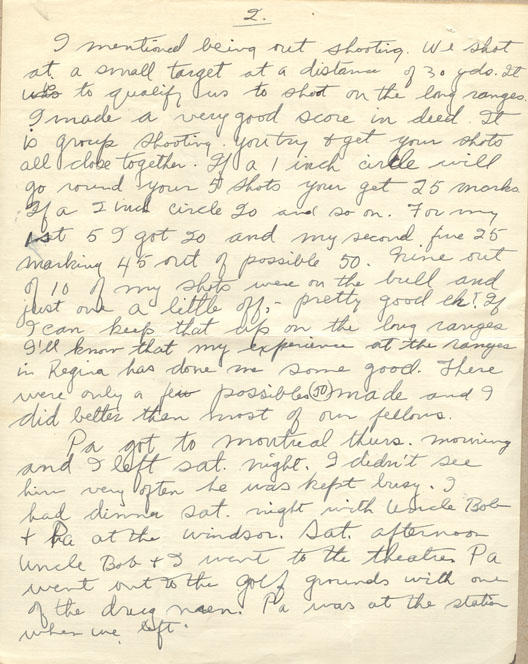 2.
I mentioned being out shooting. We shot
at a small target at a distance of 30 yds. It
was to qualify us to shoot on the long ranges.
I made a very good score in deed. It
is group shooting. you try & get your shots
all close together. If a 1 inch circle will
go round your 5 shots your get 25 marks
If a 2 inch circle 20 and so on. For my
1st 5 I got 20 and my second five 25
marking 45 out of possible 50. Nine out
of 10 of my shots were on the bull and
just one a little off,- pretty good eh? If
I can keep that up on the long ranges
I'll know that my experience at the ranges
in Regina has done me some good. There
were only a few possibles (50) made and I
did better than most of our fellows.
Pa got to Montreal thurs. morning
and I left sat. night. I didn't see
him very often he was kept busy. I
had dinner sat. night with Uncle Bob
& Pa at the Windsor. Sat. afternoon
Uncle Bob & I went to the theatre. Pa
went out to the golf grounds with one
of the drug men. Pa was at the station
when we left.